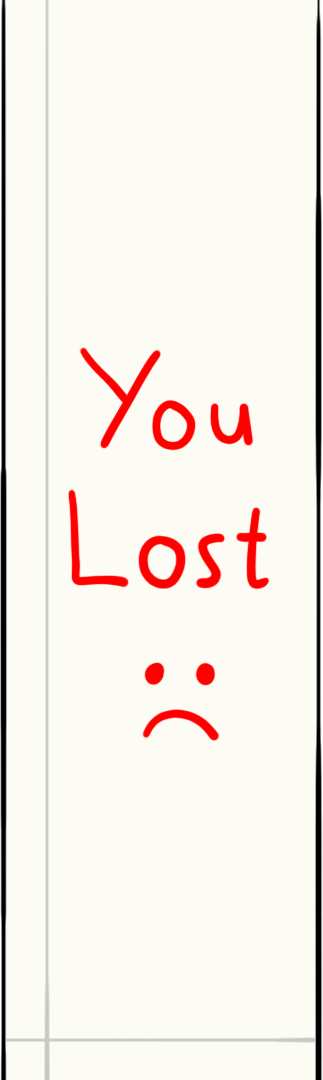 You
Lost